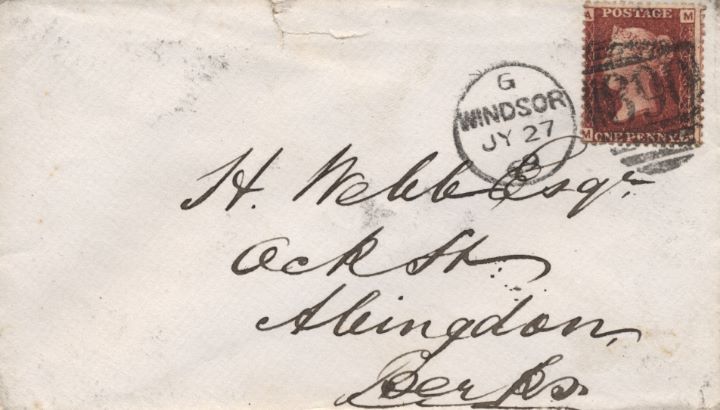 A POSTAGE M
M ONE PENNY
G
WINDSOR
JY 27
H. Webb Esqr.
Ock St.
Abingdon,
Berks